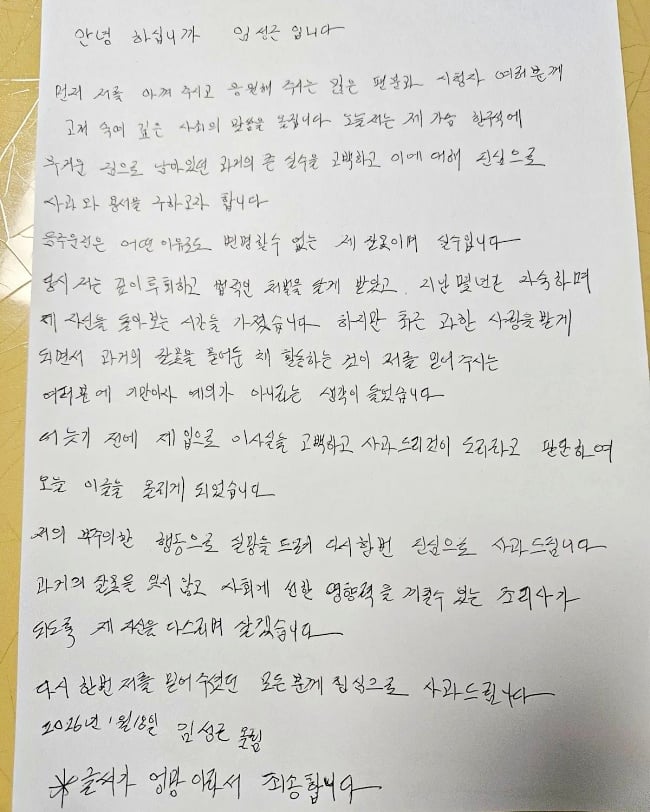 안녕 하십니까 임성근 입니다
먼저 저를 아껴 주시고 응원해 주시는 많은 팬분과 시청자 여러분께
고개 숙여 깊은 사죄의 말씀을 올립니다 오늘 저는 제 가슴 한구석에
무거운 짐으로 남아있던 과거의 큰 실수을 고백하고 이에 대해 진심으로
사과와 용서를 구하고자 합니다
음주운전은 어떤 이유로도 변명할수 없는 제 잘못이며 실수입니다
당시 저는 깊이 후회하고 법적인 처벌을 달게 받았고. 지난 몇년간 자숙하며
제 자신을 돌아보는 시간을 가졌습니다 하지만 최근 과한 사랑을 받게
되면서 과거의 잘못을 묻어둔 채 활동하는 것이 저를 믿어 주시는
여러분에 기만이자 예의가 아니라는 생각이 들었습니다
더 늦기 전에 제 입으로 이사실을 고백하고 사과드리것이 도리라고 판단하여
오늘 이글을 올리게 되었습니다
저의 부주의한 행동으로 실망을 드려 다시한번 진심으로 사과드립니다
과거의 잘못을 잊지 않고 사회게 선한 영향력을 끼칠수 있는 조리사가
되도록 제 자신을 다스리며 살겠습니다
다시 한번 저를 믿어 주셨던 모든분께 진심으로 사과드립니다
2026년 1월 18일 임성근 올림
※글씨가 엉망이라서 죄송합니다